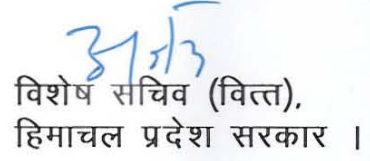 विशेष सचिव (वित्त),
हिमाचल प्रदेश सरकार ।